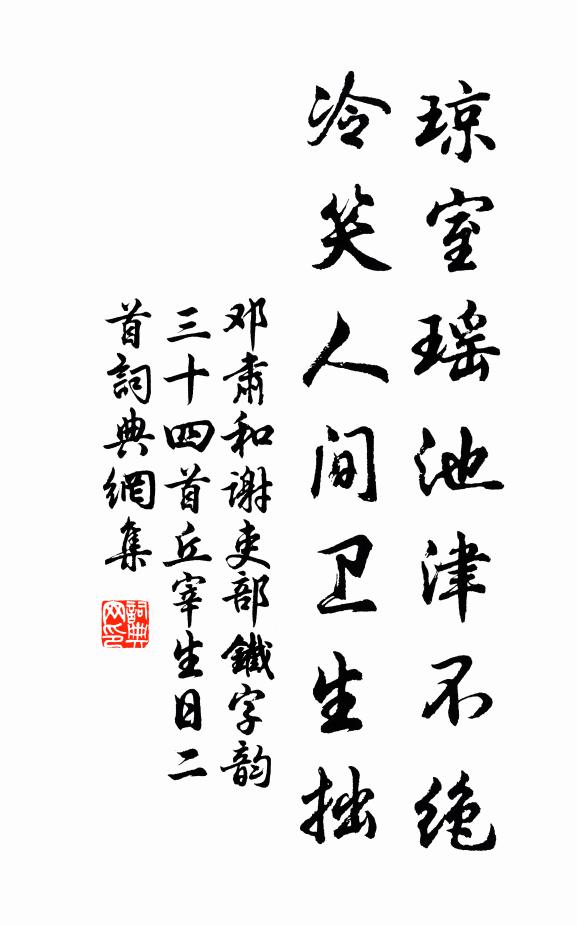 琼室瑶池津不绝
冷笑人间卫生拙
邓肃和谢吏部鐵字韵
三十四首丘宰生日二
首詞典網集
詞典网印